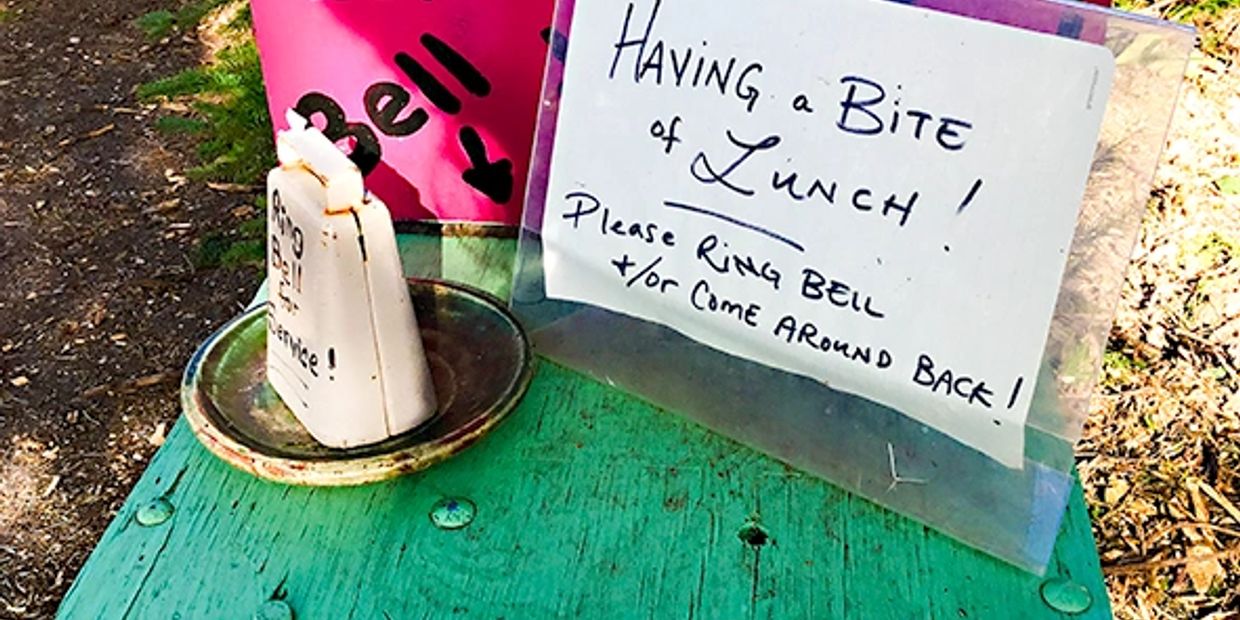 Bell
HAVING a BiTE
of LUNCH!
Please RiNG BELL
+/or COME AROUND BACK!
Ring
Bell
for
Service!